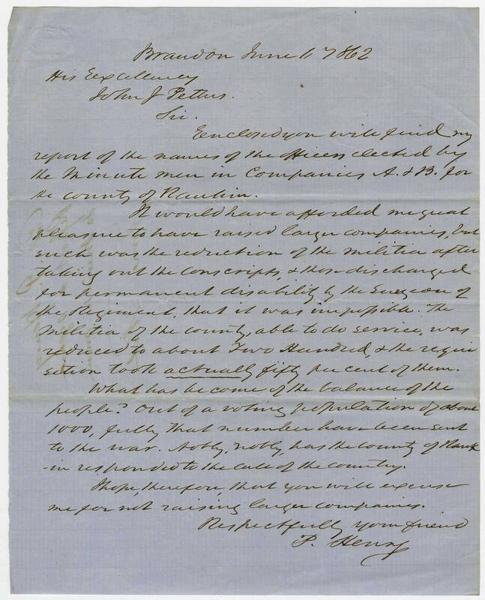 Brandon June 1st 1862
His Excellency
John J Pettus.
Sir.
Enclosed you will find my
report of the names of the officers elected by
the Minute men in Companies A. & B. for
the county of Rankin.
It would have afforded me great
pleasure to have raised larger companies, but
such was the reduction of the militia after
taking out the conscripts, & those discharged
for permanent disability by the Surgeon of
the Regiment, that it was impossible. The
Militia of the county, able to do service, was
reduced to about Two Hundred, & the requi
sition took actually fifty per cent of them.
What has become of the balance of the
people? Out of a voting population of about
1000, fully that number have been sent
to the war. Nobly, nobly, has the county of Rank
-in responded to the call of the country.
I hope, therefore, that you will excuse
me for not raising larger companies.
Respectfully your friend
P. Henry